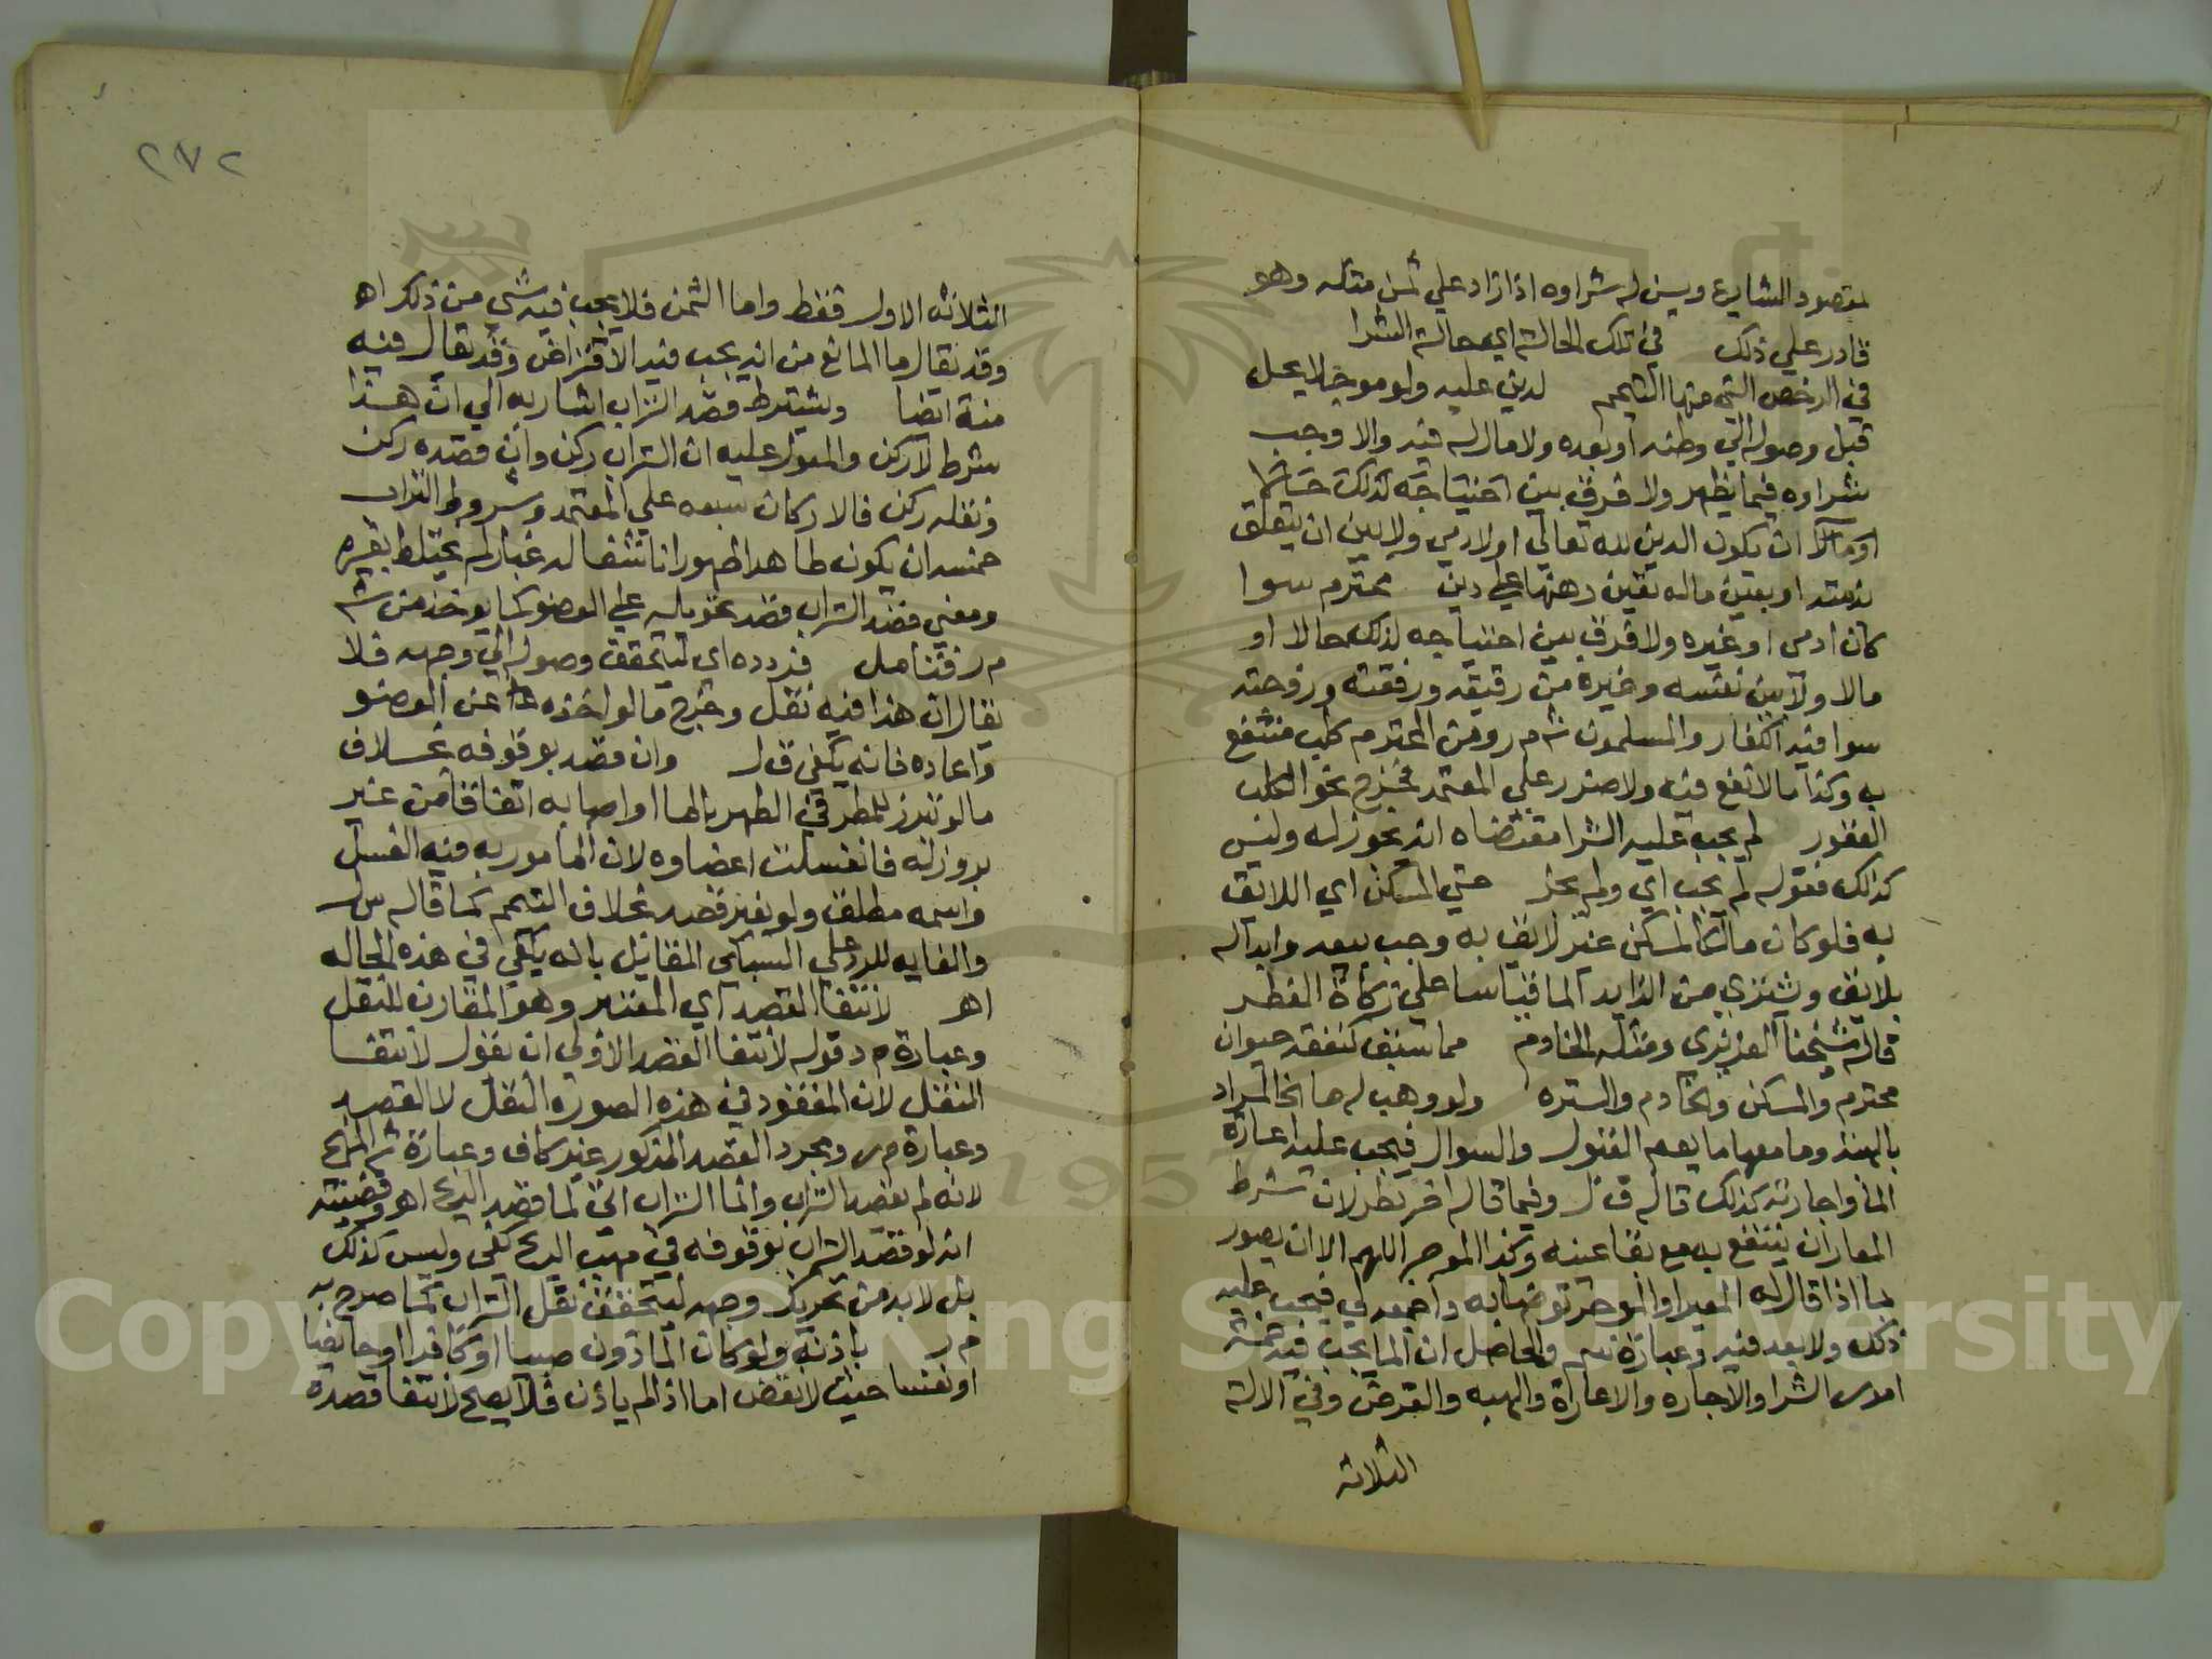 لمقصود الشارع ويسن له شراوه اذا زاد علي ثمن مثله وهو
قادر علي ذلك في تلك الحالة اي حالة الشرا
في الرخص التي منها التيمم لدين عليه ولو موجلا يحل
قبل وصوله الي وطنه او بعده ولا مال له فيه والا وجب
شراوه فيما يظهر ولا فرق بين احتياجه لذلك حالا
او مالا ان يكون الدين لله تعالي او لادمي ولا بين ان يتعلق
بذمته او بعين ماله كعين رهنها علي دين محترم سوا
كان ادمي او غيره ولا فرق بين احتياجه لذلك حالا او
مالا ولا بين نفسه وغيره من رقيقه ورفقته وزوجته
سوا فيه الكفار والمسلمون ش م ر ومن المحترم كلب منتفع
به وكذا ما لا نفع فيه ولا ضرر علي المعتمد فخرج نحو الكلب
العقور لم يجب عليه الشرا مقتضاه انه يجوز له وليس
كذلك فقوله لم يجب اي ولم يجز حتي المسكن اي اللائق
به فلو كان مالكا لمسكن غير لائق به وجب بيعه وابداله
بلائق ويشتري من الزايد الما قياسا علي زكاة الفطر
قاله شيخنا العزيزي ومثله الخادم مما سبق كنفقة حيوان
محترم والمسكن والخادم والسترة ولو وهب له ما الخ المراد
بالهبة وما معها ما يعم القبول والسوال فيجب عليه اعارة
الما واجارته كذلك قاله ق ل وفيما قاله اخر نظر لان شرط
المعار ان ينتفع به مع بقا عينه وكذا الموجر اللهم الا ان يصور
بما اذا قال له المعير او الموجر توضا به واجمعه لي فيجب عليه
ذلك ولا بعد فيه وعبارة سم والحاصل ان الما يجب فيه خمسة
امور الشرا والاجارة والاعارة والهبة والقرض وفي الالة
الثلاثة
٢٧٢
الثلاثة الاول فقط واما الثمن فلا يجب فيه شي من ذلك اهـ
وقد يقال ما المانع من انه يجب فيه الاقتراض وقد يقال فيه
منة ايضا ويشترط قصد التراب اشار به الي ان هذا
شرط لا ركن والمعول عليه ان التراب ركن وان قصده ركن
ونقله ركن فالاركان سبعه علي المعتمد وشروط التراب
خمسه ان يكون طاهرا طهورا ناشفا له غبار لم يختلط بغيره
ومعني قصد التراب قصد تحويله علي العضو كما يوخذ من ش
م ر فتامل فردده اي ليتحقق وصوله الي وجهه فلا
يقال ان هذا فيه نقل وخرج ما لو اخذه عن العضو
واعاده فانه يكفي ق ل وان قصد بوقوفه بخلاف
ما لو برز للمطر في الطهر بالما او اصابه اتفاقا من غير
بروز له فانغسلت اعضاوه لان المامور به فيه الغسل
واسمه مطلق ولو بغير قصد بخلاف التيمم كما قاله س ل
والغايه للرد علي السبكي القايل بانه يكفي في هذه الحاله
اهـ لانتفا القصد اي المعتبر وهو المقارن للنقل
وعبارة م د قوله لانتفا القصد الاولي ان يقول لانتفا
النقل لان المفقود في هذه الصورة النقل لا القصد
وعبارة م ر ومجرد القصد المذكور غير كاف وعبارة ش المنهج
لانه لم يقصد التراب وانما التراب اتي لما قصد الريح اهـ وقضيته
انه لو قصد التراب بوقوفه في مهب الريح كفي وليس كذلك
بل لا بد من تحريك وجهه ليتحقق نقل التراب كما صرح به
م ر باذنه ولو كان الماذون صبيا او كافرا او حايضا
او نفسا حيث لا نقض اما اذا لم ياذن فلا يصح لانتفا قصده
Copyright © King Saud University
1957